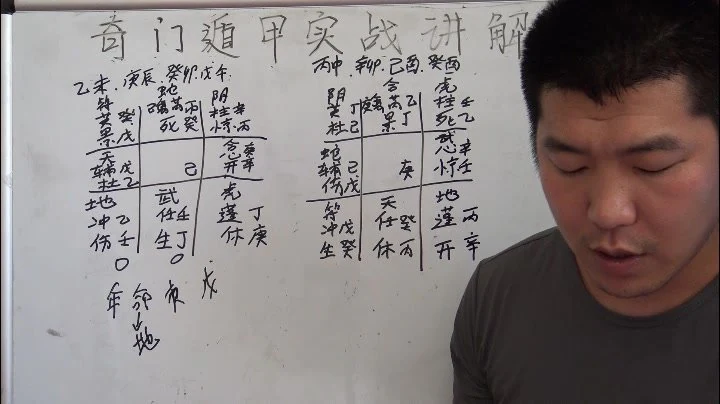 奇门遁甲实战讲解
乙未 庚辰 癸卯 戊午
符 蛇 阴
英癸 禽芮丙 柱辛
景戊 死癸 惊丙
天
辅戊 己 开辛
杜乙
地 武
冲乙 任壬 蓬丁
伤壬 生丁 休庚
年命
地
丙申 辛卯 己酉 癸酉
阴 合 虎
英丁 芮乙 柱壬
杜己 景丁 死乙
蛇
辅己 庚 惊壬
伤戊
符 天 地
冲戊 任癸 蓬丙
生癸 休丙 开辛